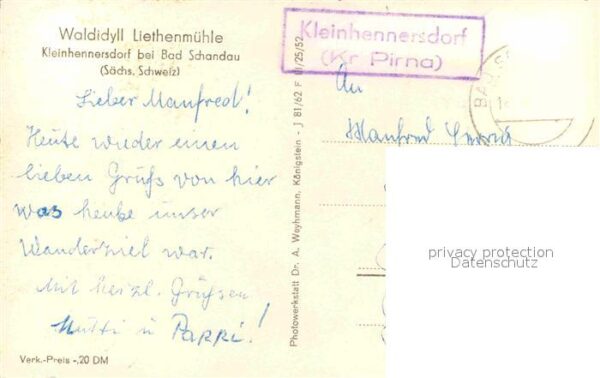 Waldidyll Liethenmühle
Kleinhennersdorf bei Bad Schandau
(Sächs. Schweiz)
Lieber Manfred!
Heute wieder einen
lieben Gruß von hier
was heute unser
Wanderziel war.
Mit herzl. Grüßen
Mutti u Pappi!
Verk.-Preis -,20 DM
Photowerkstatt Dr. A. Weyhmann, Königstein - J 81/62 F III/25/52
Kleinhennersdorf
(Kr Pirna)
BAD
An
Manfred
privacy protection
Datenschutz